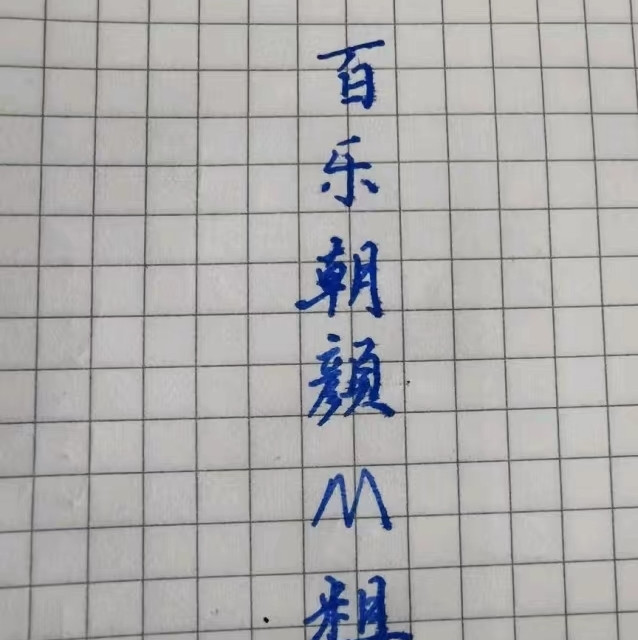 百乐朝颜M粗